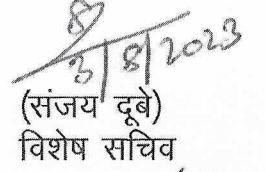 3/8/2023
(संजय दूबे)
विशेष सचिव